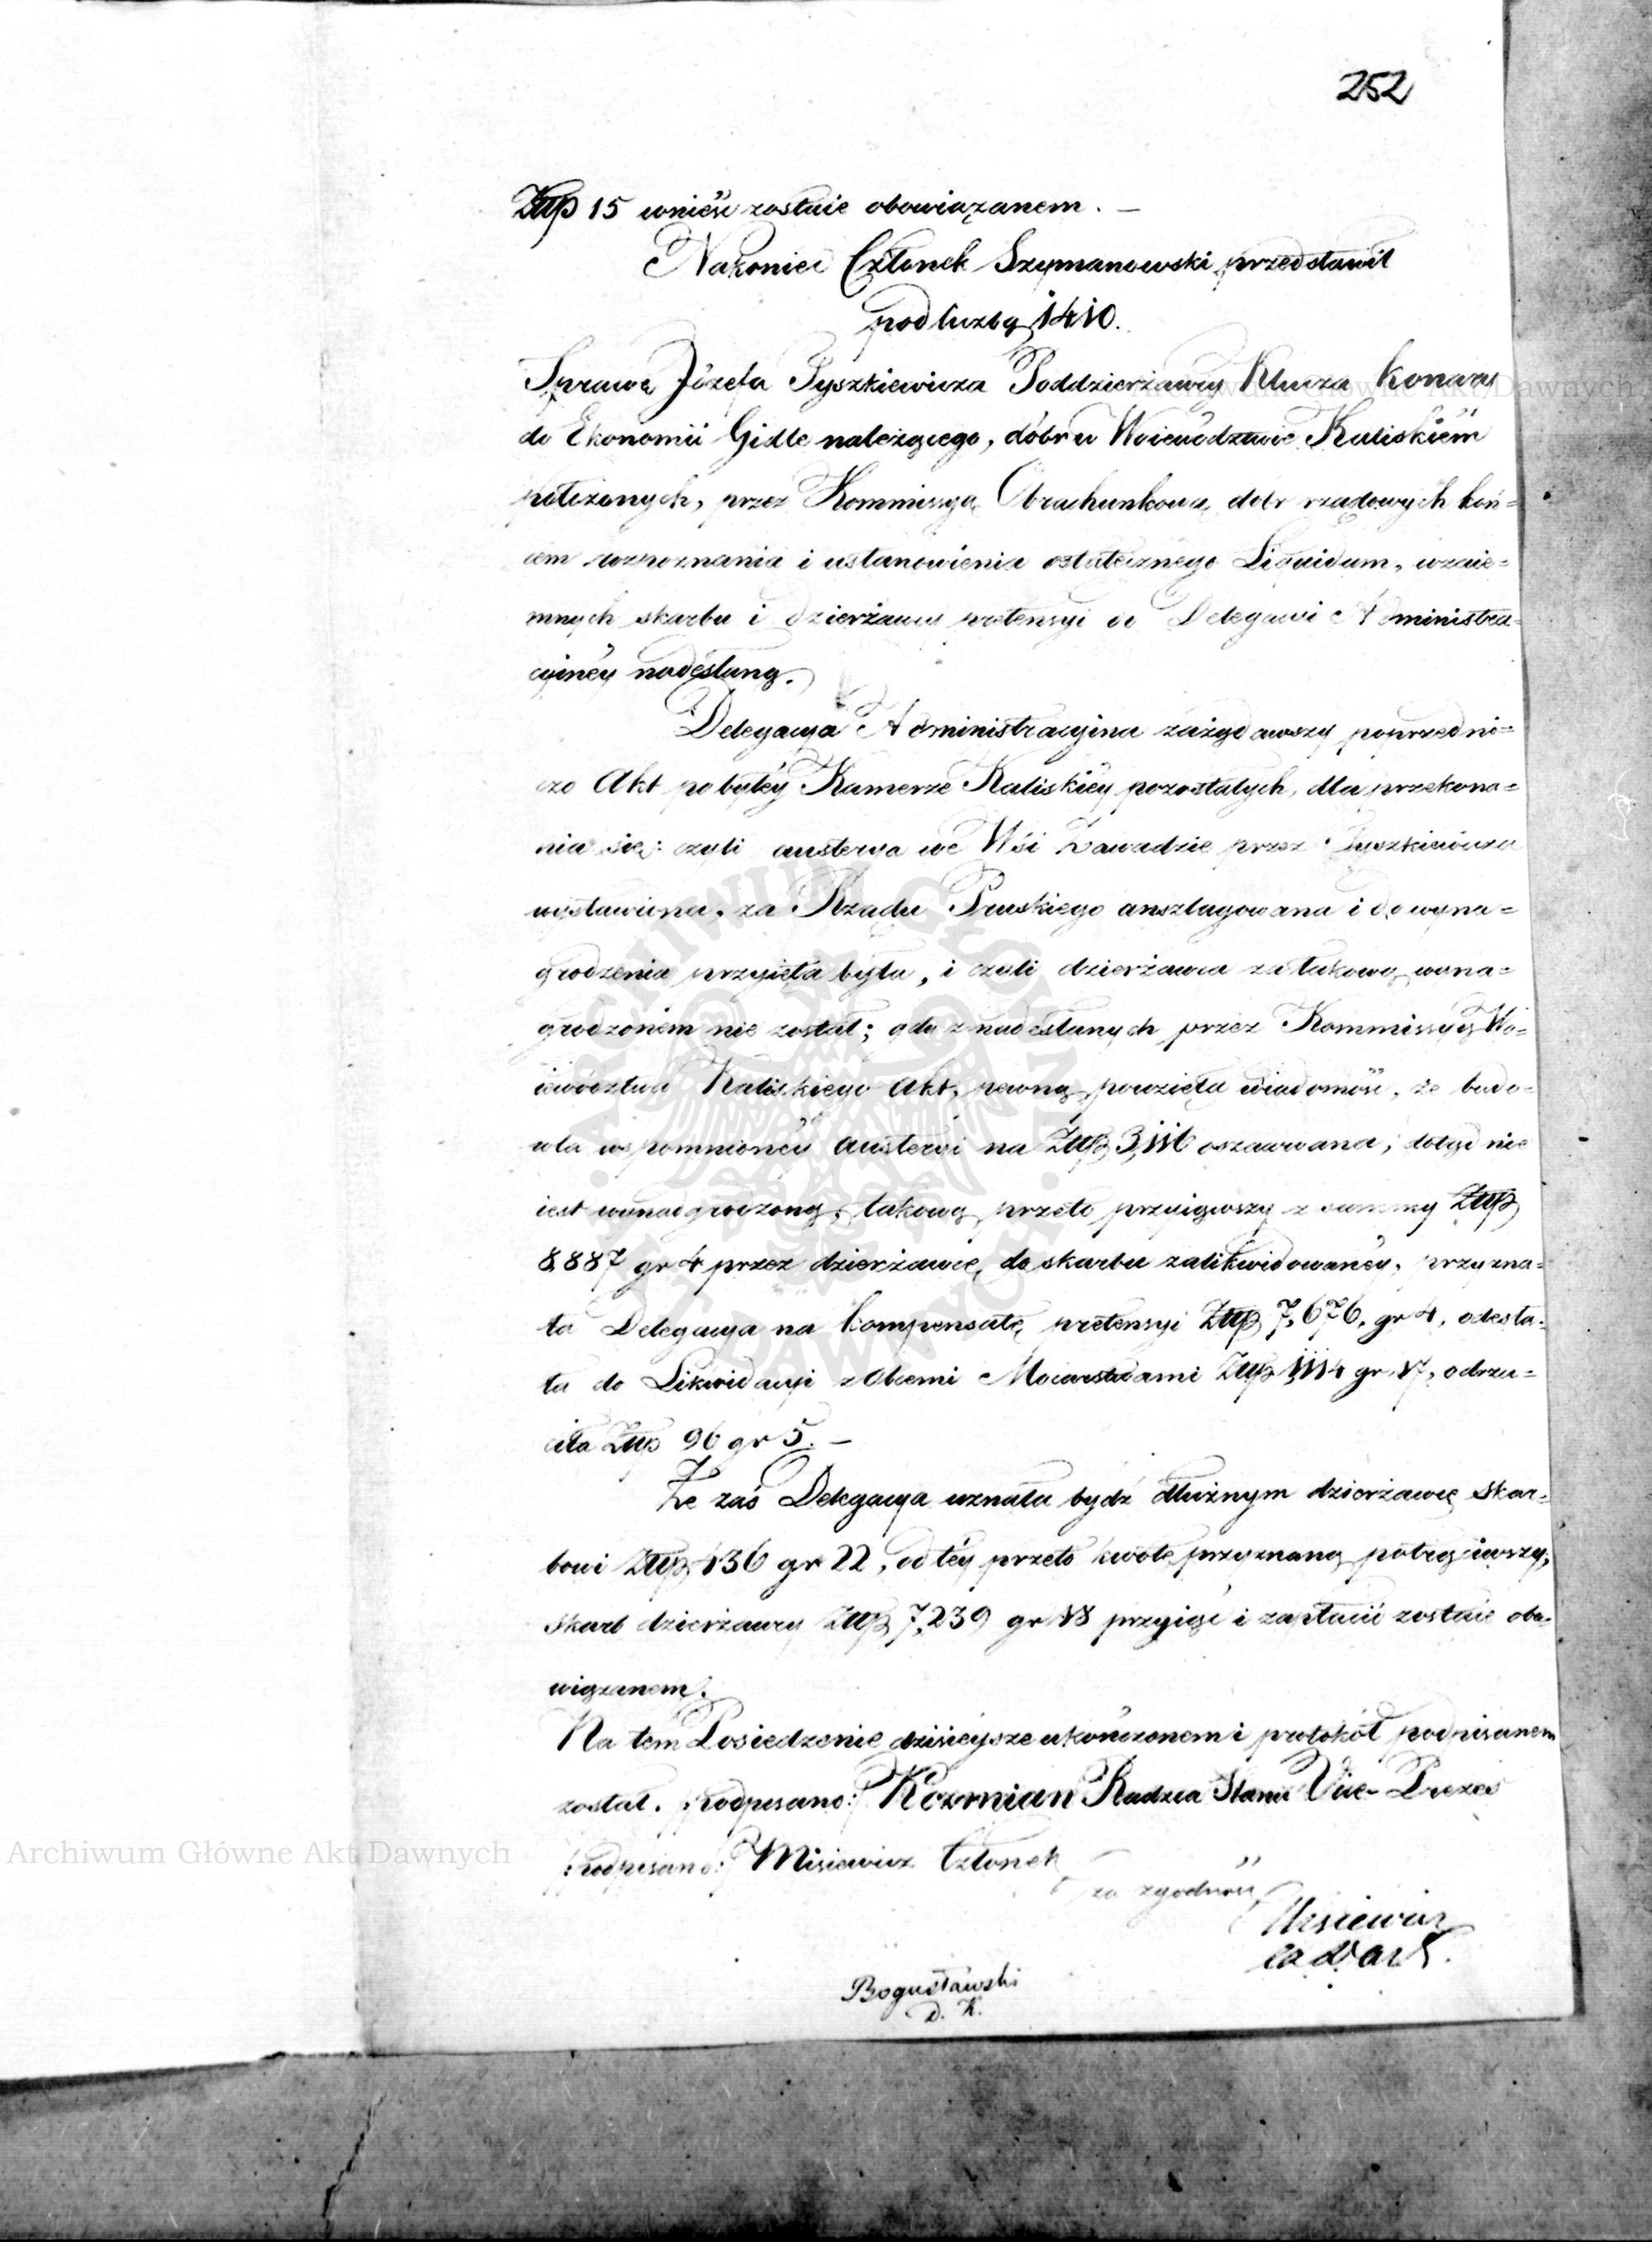 252
Złłp 15 wnieść zostaie obowiązanem. —
Nakoniec Członek Szymanowski przedstawił
pod liczbą 1410.
Sprawę Józefa Tyszkiewicza Poddzierżawcy Klucza Konary
do Ekonomii Gidle należącego, dóbr w Woiewództwie Kaliskiém
położonych, przez Kommissyą Obrachunkową dóbr rządowych koń=
cem rozpoznania i ustanowienia ostatecznego Liquidum, wzaie=
mnych skarbu i dzierżawcy pretensyi do Delegacyi Administra=
cyinéy nadesłaną.
Delegacya Administracyina zażądawszy poprzedni=
czo Akt po byłéy Kamerze Kaliskiéy pozostałych, dla przekona=
nia się: czyli austerya we Wsi Zawadzie przez Tyszkiewicza
wystawiona, za Rządu Pruskiego anszlagowana i do wyna=
grodzenia przyięta była, i czyli dzierżawca za takową wyna=
grodzoném nie został; gdy z nadesłanych przez Kommissyą Wo=
iewództwa Kaliskiego Akt, pewną powzięła wiadomość, że budo=
wla wspomnionéy Austeryi na Złłp oszacowana, dotąd nie
iest wynadgrodzoną, takową przeto przyiąwszy z summy Złłp
8,887 gr 4 przez dzierżawcę do skarbu zalikwidowanéy, przyzna=
ła Delegacya na kompensatę pretensyi Złłp 7,676, gr 4, odesła=
ła do Likwidacyi z Obcemi Mocarstwami Złłp 1114 gr , odrzu=
ciła Złłp 96 gr 5. —
Że zaś Delegacya uznała bydź dłużnym dzierżawcę skar=
bowi Złłp 436 gr 22, od téy przeto kwotę przyznaną potrąciwszy,
skarb dzierżawcy Złłp 7,239 gr przyiąć i zapłacić zostaie obo=
wiązanem.
Na tem Posiedzenie dzisieysze ukończonem i protokół podpisanem
został. /:podpisano:/ Koźmian Radzca Stanu Vice-Prezes
/:podpisano:/ Misiewicz Członek
za zgodność
Misiewicz
Bogusławski
D. K.
Archiwum Główne Akt Dawnych
Archiwum Główne Akt Dawnych
ARCHIWUM GŁÓWNE AKT DAWNYCH